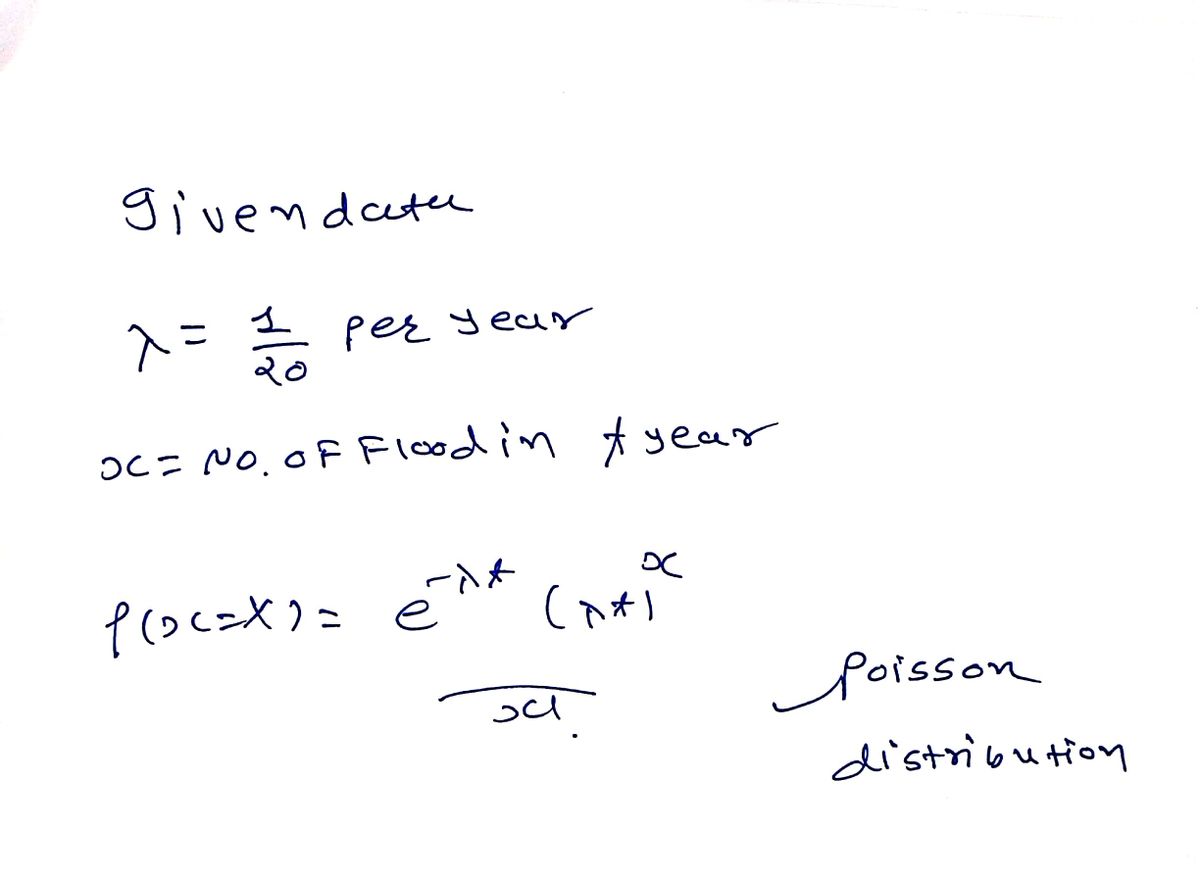 given data
λ = 1/20 per year
x = No. of Flood in t year
P(x=X) = e^-λt (λt)^x
x!
Poisson
distribution